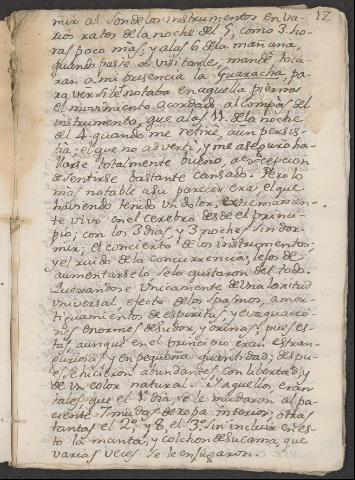 17
mir al son de los instrumentos en va-
rios ratos de la noche del 5, como 3. ho-
ras poco mas, y a las 6 de la mañana,
quando pasé a visitarle, mandé toca-
ran a mi presencia la Guaracha, pa-
ra ver si le notaba en aquella pierna
el movimiento acordado al compas del
instrumento, que a las 11 de la noche
del 4. quando me retiré, aun persis-
tia; el que no adverti, y me aseguró ha-
llarse totalmente bueno, a excepcion
de sentirse bastante cansado. Pero lo
mas notable a su parecer era, el que
haviendo tenido un dolor, extremamen-
te vivo en el cerebro desde el princi-
pio; con los 3 dias, y 3 noches sin dor-
mir; el concierto de los instrumentos
y el ruido de la concurrencia, lejos de
aumentarselo, se lo quitaron del todo.
Quexandose unicamente de una laxitud
universal efecto de los espasmos, amor-
tiguamiento de espiritus, y evaquacio-
nes enormes de sudor, y orinas; pues es-
tas, aunque en el principio eran
y en pequeña quantidad; despu-
es se hicieron abundantes con libertad, y
de un color natural. Y aquellos, eran
tales, que el 1º dia, se le mudaron al pa-
ciente 7 mudas de ropa interior; otras
tantas el 2º; y 8, el 3º sin incluir en es-
to la manta, y colchon de su cama, que
varias veces se le enjugaron.